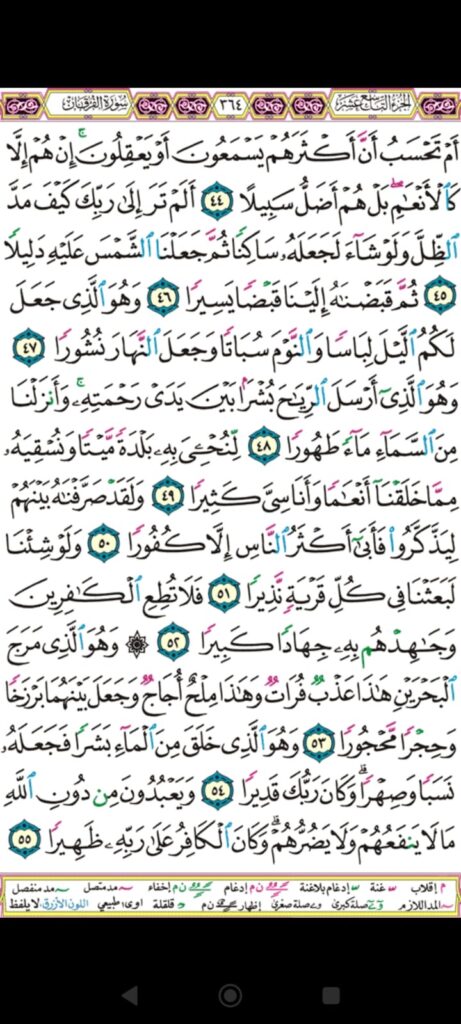 الجزء التاسع عشر ٣٦٤ سورة الفرقان
أَمْ تَحْسَبُ أَنَّ أَكْثَرَهُمْ يَسْمَعُونَ أَوْ يَعْقِلُونَ ۚ إِنْ هُمْ إِلَّا
كَالْأَنْعَامِ ۖ بَلْ هُمْ أَضَلُّ سَبِيلًا ٤٤ أَلَمْ تَرَ إِلَىٰ رَبِّكَ كَيْفَ مَدَّ
الظِّلَّ وَلَوْ شَاءَ لَجَعَلَهُ سَاكِنًا ثُمَّ جَعَلْنَا الشَّمْسَ عَلَيْهِ دَلِيلًا
٤٥ ثُمَّ قَبَضْنَاهُ إِلَيْنَا قَبْضًا يَسِيرًا ٤٦ وَهُوَ الَّذِي جَعَلَ
لَكُمُ اللَّيْلَ لِبَاسًا وَالنَّوْمَ سُبَاتًا وَجَعَلَ النَّهَارَ نُشُورًا ٤٧
وَهُوَ الَّذِي أَرْسَلَ الرِّيَاحَ بُشْرًا بَيْنَ يَدَيْ رَحْمَتِهِ ۚ وَأَنزَلْنَا
مِنَ السَّمَاءِ مَاءً طَهُورًا ٤٨ لِّنُحْيِيَ بِهِ بَلْدَةً مَّيْتًا وَنُسْقِيَهُ
مِمَّا خَلَقْنَا أَنْعَامًا وَأَنَاسِيَّ كَثِيرًا ٤٩ وَلَقَدْ صَرَّفْنَاهُ بَيْنَهُمْ
لِيَذَّكَّرُوا فَأَبَىٰ أَكْثَرُ النَّاسِ إِلَّا كُفُورًا ٥٠ وَلَوْ شِئْنَا
لَبَعَثْنَا فِي كُلِّ قَرْيَةٍ نَّذِيرًا ٥١ فَلَا تُطِعِ الْكَافِرِينَ
وَجَاهِدْهُم بِهِ جِهَادًا كَبِيرًا ٥٢ ۞ وَهُوَ الَّذِي مَرَجَ
الْبَحْرَيْنِ هَٰذَا عَذْبٌ فُرَاتٌ وَهَٰذَا مِلْحٌ أُجَاجٌ وَجَعَلَ بَيْنَهُمَا بَرْزَخًا
وَحِجْرًا مَّحْجُورًا ٥٣ وَهُوَ الَّذِي خَلَقَ مِنَ الْمَاءِ بَشَرًا فَجَعَلَهُ
نَسَبًا وَصِهْرًا ۗ وَكَانَ رَبُّكَ قَدِيرًا ٥٤ وَيَعْبُدُونَ مِن دُونِ اللَّهِ
مَا لَا يَنفَعُهُمْ وَلَا يَضُرُّهُمْ ۗ وَكَانَ الْكَافِرُ عَلَىٰ رَبِّهِ ظَهِيرًا ٥٥
م إقلاب غنة إدغام بلاغنة ن م إدغام ن م إخفاء مد متصل مد منفصل
المد اللازم صلة كبرى صلة صغرى إظهار ن م قلقلة اوى: طبيعي اللون الأزرق: لا يلفظ